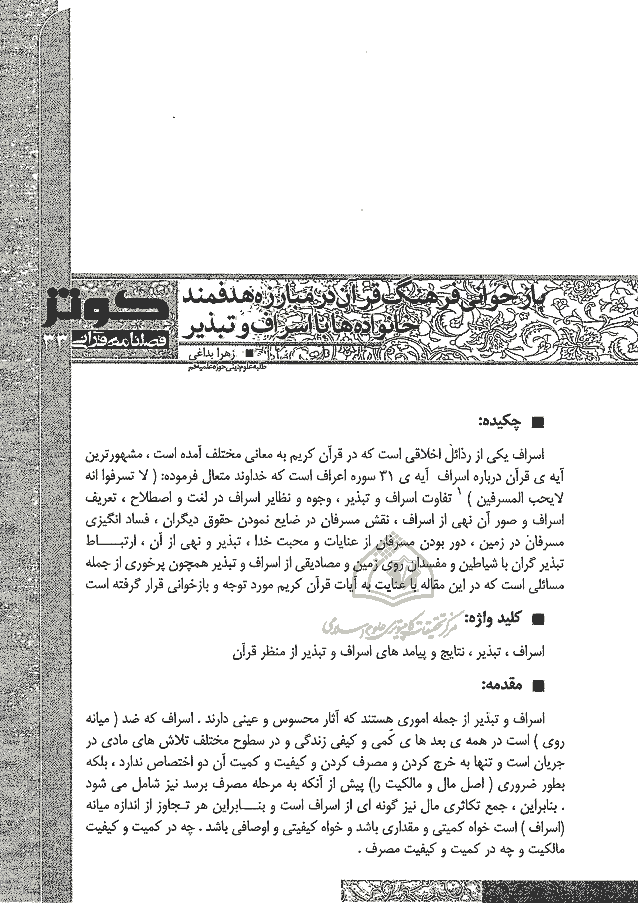 بازخوانی فرهنگ قرآن در مبارزه هدفمند
خانواده ها با اسراف و تبذیر
زهرا بداغی
طلبه علوم دینی حوزه علمیه قم
کوثر
فصلنامه قرآنی
۳۳
چکیده:
اسراف یکی از رذائل اخلاقی است که در قرآن کریم به معانی مختلف آمده است ، مشهورترین
آیه ی قرآن درباره اسراف آیه ی ۳۱ سوره اعراف است که خداوند متعال فرموده: ( لا تسرفوا انه
لایحب المسرفین ) ۱ تفاوت اسراف و تبذیر ، وجوه و نظایر اسراف در لغت و اصطلاح ، تعریف
اسراف و صور آن نهی از اسراف ، نقش مسرفان در ضایع نمودن حقوق دیگران ، فساد انگیزی
مسرفان در زمین ، دور بودن مسرفان از عنایات و محبت خدا ، تبذیر و نهی از آن ، ارتبـــاط
تبذیر گران با شیاطین و مفسدان روی زمین و مصادیقی از اسراف و تبذیر همچون پرخوری از جمله
مسائلی است که در این مقاله با عنایت به آیات قرآن کریم مورد توجه و بازخوانی قرار گرفته است
کلید واژه:
مرکز تحقیقات کامپیوتری علوم اسلامی
اسراف ، تبذیر ، نتایج و پیامد های اسراف و تبذیر از منظر قرآن
مقدمه:
اسراف و تبذیر از جمله اموری هستند که آثار محسوس و عینی دارند . اسراف که ضد ( میانه
روی ) است در همه ی بعد ها ی کمی و کیفی زندگی و در سطوح مختلف تلاش های مادی در
جریان است و تنها به خرج کردن و مصرف کردن و کیفیت و کمیت آن دو اختصاص ندارد ، بلکه
بطور ضروری ( اصل مال و مالکیت را) پیش از آنکه به مرحله مصرف برسد نیز شامل می شود
. بنابراین ، جمع تکاثری مال نیز گونه ای از اسراف است و بنـــابراین هر تجاوز از اندازه میانه
(اسراف ) است خواه کمیتی و مقداری باشد و خواه کیفیتی و اوصافی باشد . چه در کمیت و کیفیت
مالکیت و چه در کمیت و کیفیت مصرف .